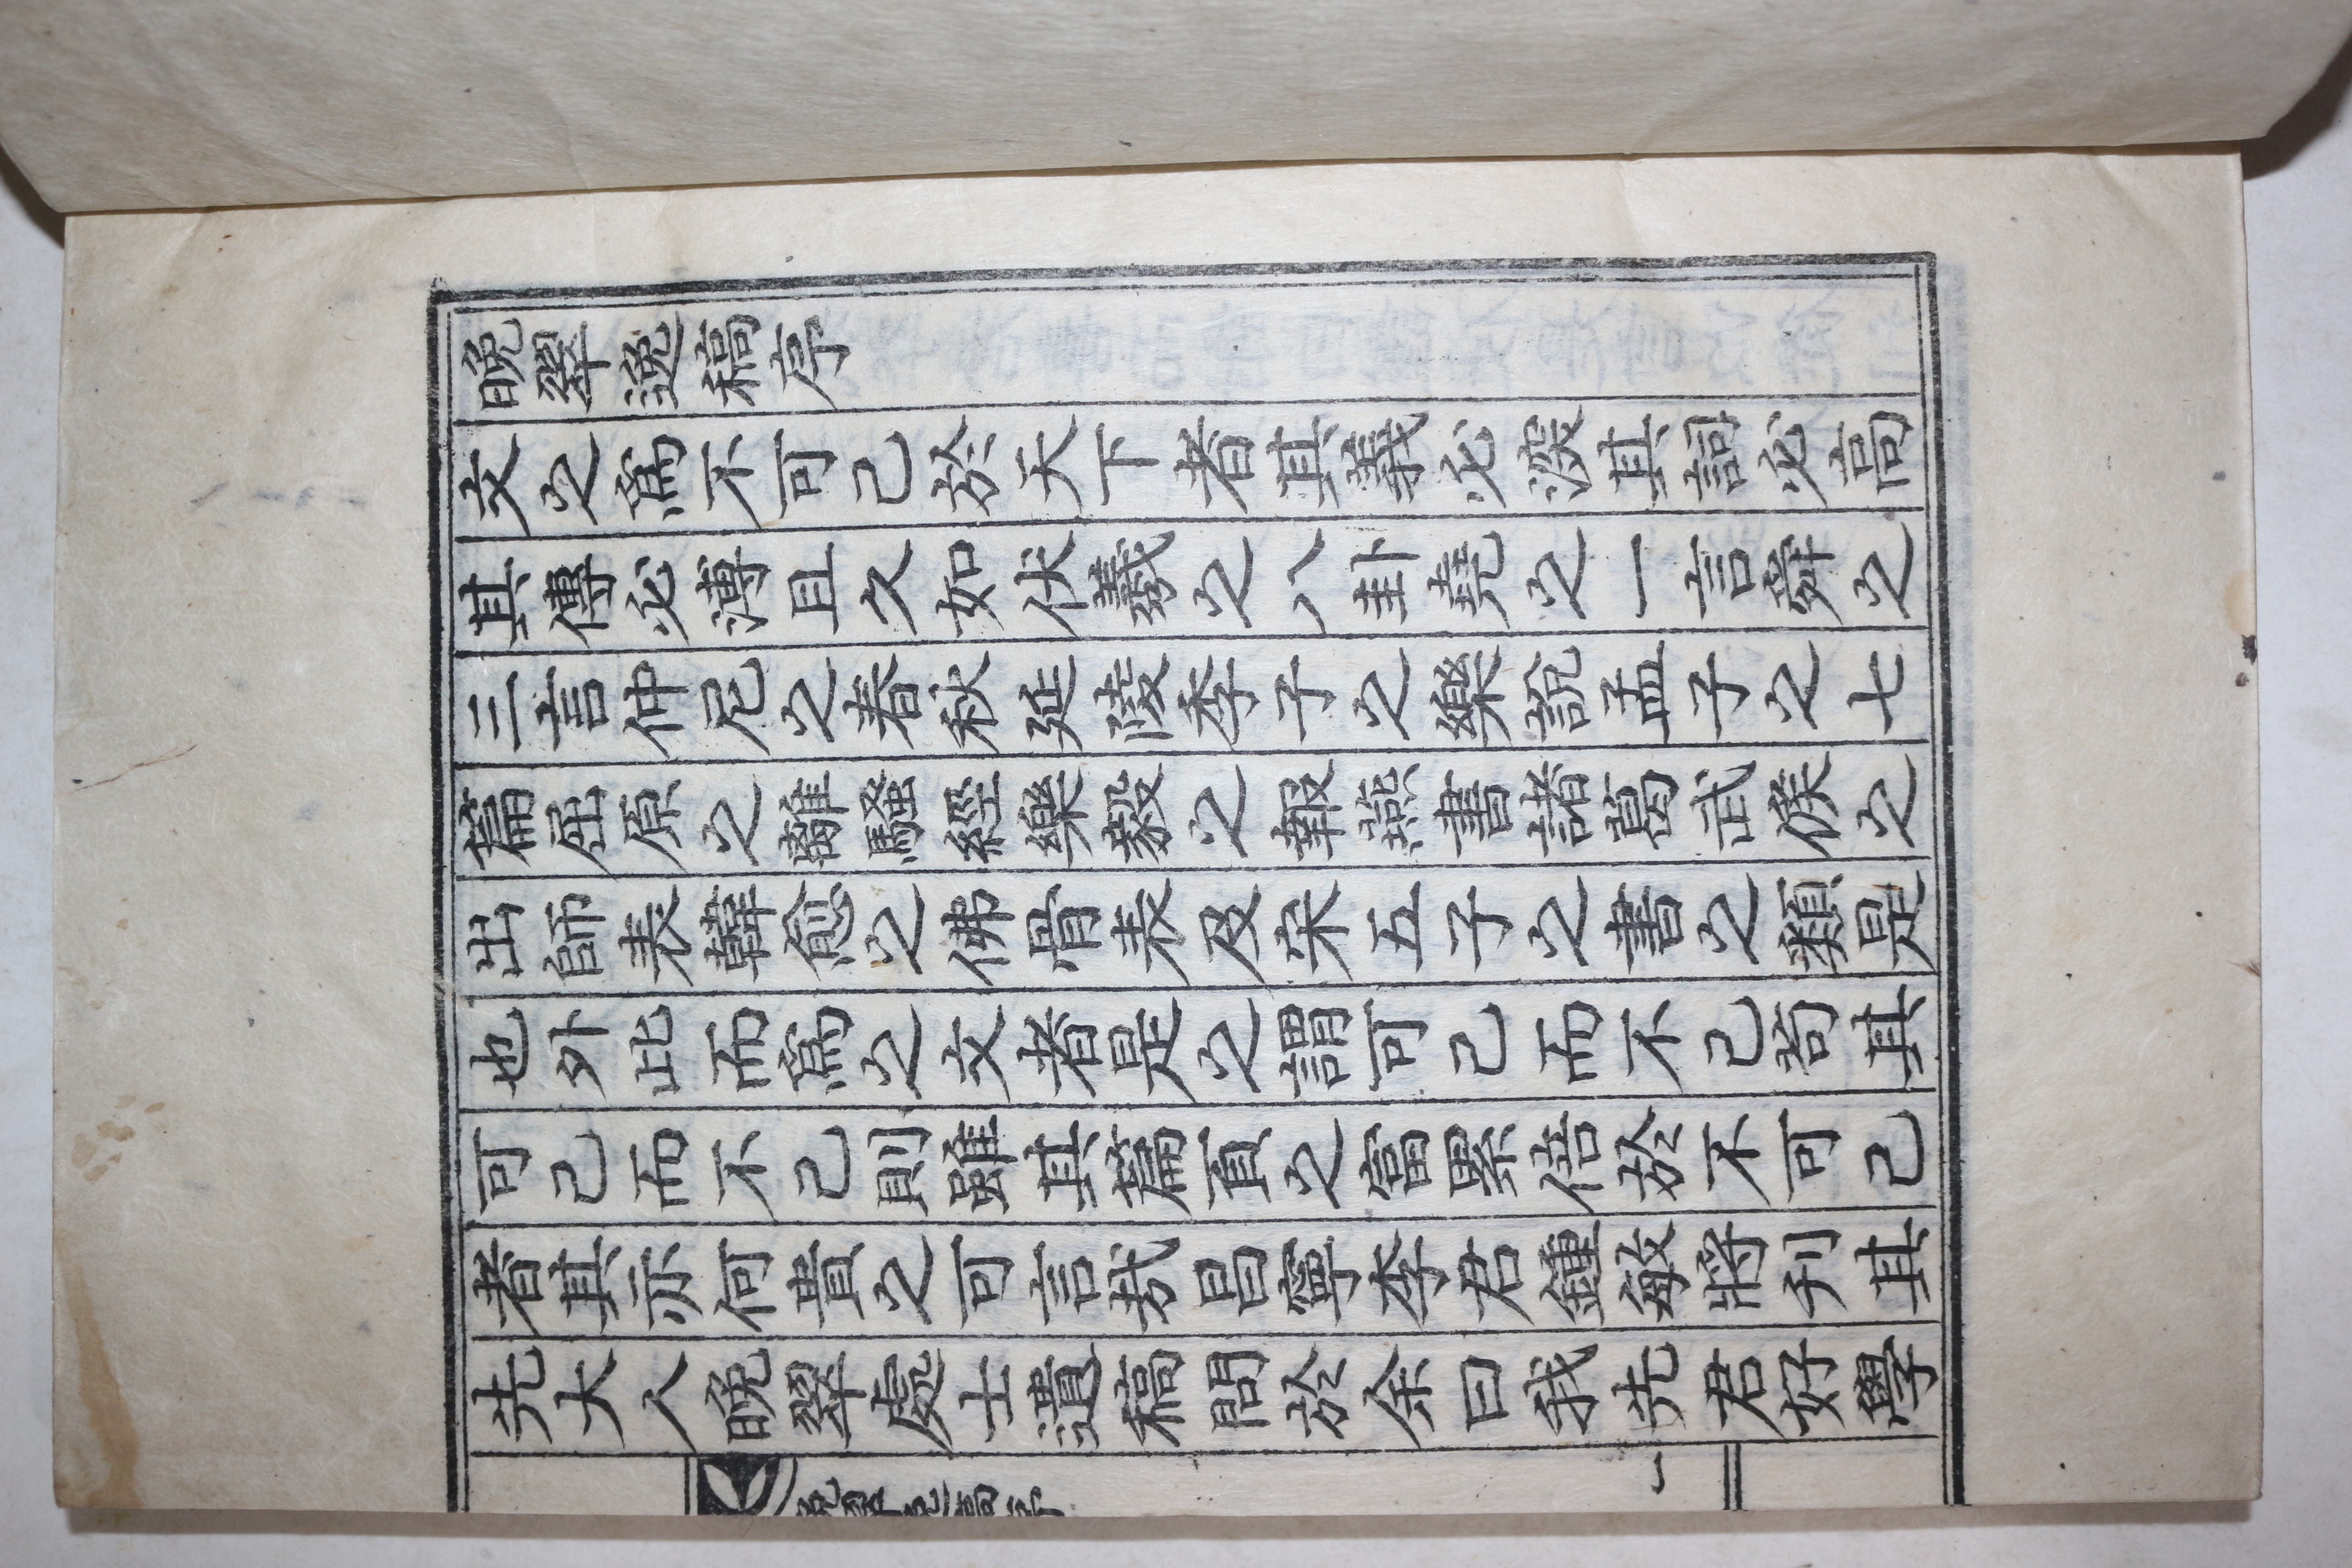 晩翠逸稿序
文之爲不可已於天下者其義必深其詞必高
其傳必溥且久如伏羲之八卦堯之一言舜之
三言仲尼之春秋延陵季子之樂說孟子之七
篇屈原之離騷經樂毅之報燕書諸葛武侯之
出師表韓愈之佛骨表及宋五子之書之類是
也外此而爲之文者是之謂可已而不已苟其
可已而不已則雖其篇頁之富累倍於不可已
者其亦何貴之可言哉昌寧李君鍾敏將刋其
先大人晩翠處士遺稿問於余曰我先君好學
晩翠逸稿序 一